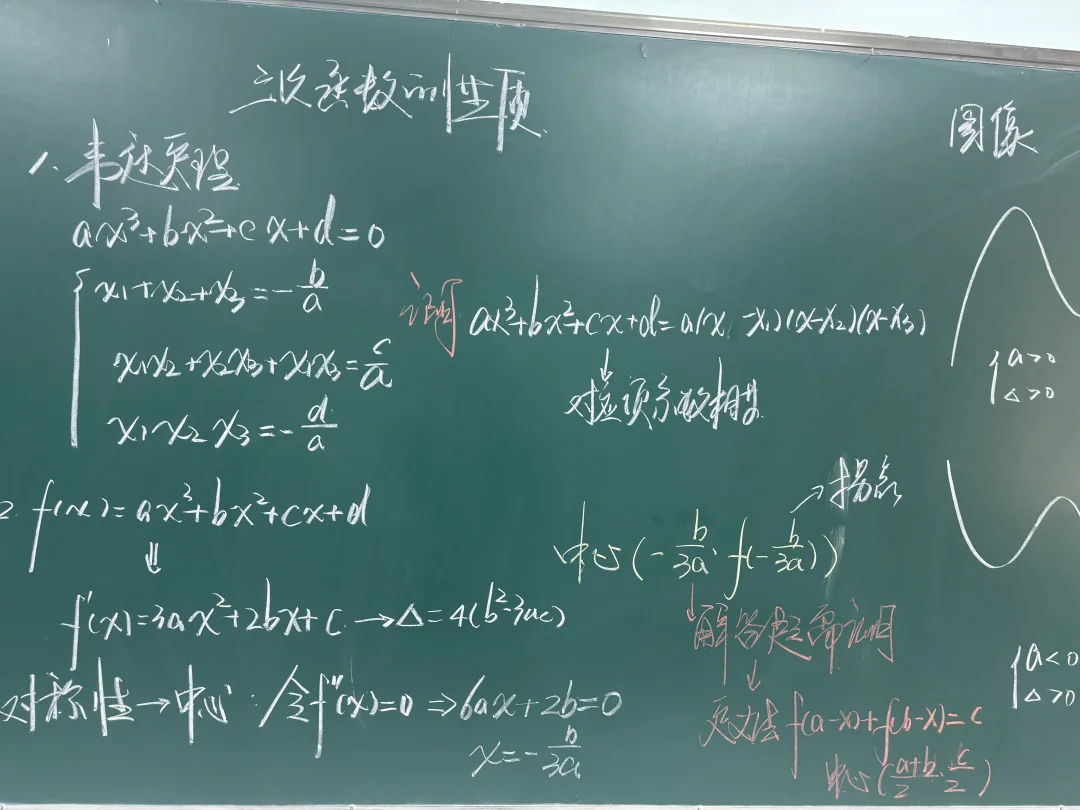 三次函数的性质
1. 韦达定理
ax³+bx²+cx+d=0
x₁+x₂+x₃=-b/a
x₁x₂+x₂x₃+x₁x₃=c/a
x₁x₂x₃=-d/a
证明 ax³+bx²+cx+d=a(x-x₁)(x-x₂)(x-x₃)
↓
对应项系数相等
2. f(x)=ax³+bx²+cx+d
⇓
f'(x)=3ax²+2bx+c → Δ=4(b²-3ac)
对称性→中心: 令f''(x)=0 ⇒6ax+2b=0
x=-b/3a
→拐点
中心(-b/3a, f(-b/3a))
↓
解答题需证明
↓
定义法 f(a-x)+f(b-x)=c
中心(a+b/2, c/2)
图像
{a>0
Δ>0
{a<0
Δ>0